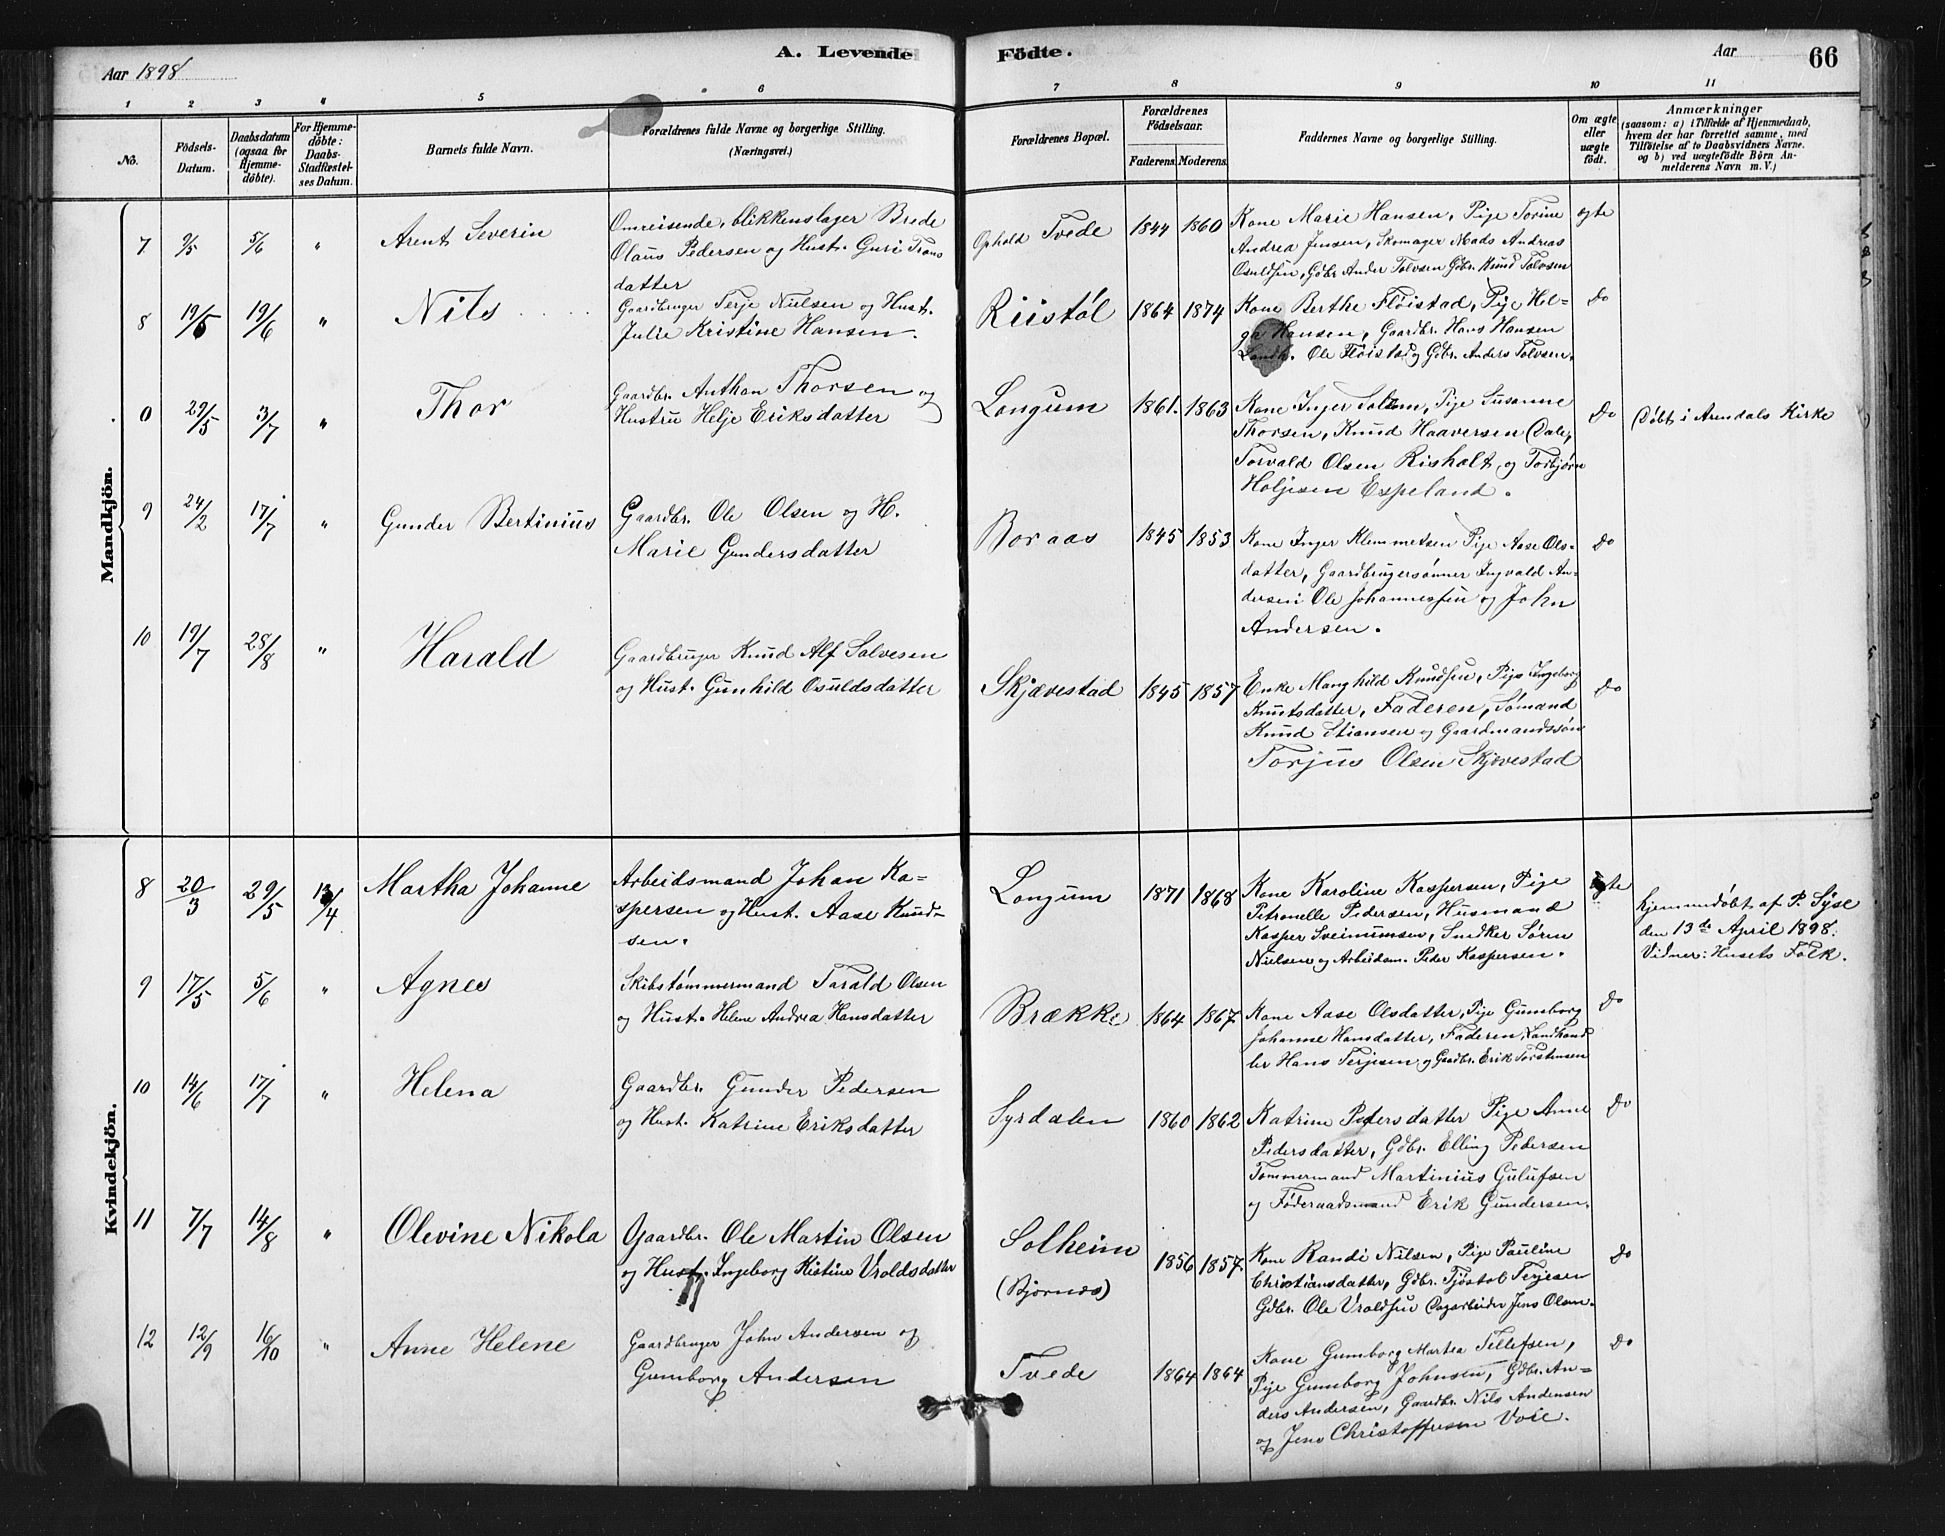 Aar 1898
A. Levende Födte.
Aar
66
1 2 3 4 5 6 7 8 9 10 11
No.
Födsels-
Datum.
Daabsdatum
(ogsaa for
Hjemme-
döbte).
For Hjemme-
döbte:
Daabs-
Stadfæstel-
ses Datum.
Barnets fulde Navn.
Forældrenes fulde Navne og borgerlige Stilling.
(Næringsvei.)
Forældrenes Bopæl.
Forældrenes
Födselsaar.
Faderens. Moderens.
Faddernes Navne og borgerlige Stilling.
Om ægte
eller
uægte
födt.
Anmærkninger
(saasom: a) i Tilfælde af Hjemmedaab,
hvem der har forrettet samme, med
Tilföielse af to Daabsvidners Navne.
og b) ved uægtefödte Börn An-
melderens Navn m. V.)
Mandkjön.
7 9/5 5/6 " Arent Severin
Omreisende, blikkenslager Brede
Olaus Pedersen og Hust. Guri Trons
datter
Ophold Tvede 1844 1860
Kone Marie Hansen, Pige Torine
Andrea Jensen, Skomager Mads Andreas
Osuldsen, Gdbr Ander Tolvsen Gdbr. Knud Tolvsen
ægte
8 19/5 19/6 " Nils
Gaardbruger Terje Nielsen og Hust.
Julie Kristine Hansen.
Riistöl 1864 1874
Kone Berthe Flöistad, Pige Hel-
ga Hansen, Gaardbr. Hans Hansen
Landb. Ole Flöistad og Gdbr. Anders Tolvsen.
do
0 29/5 3/7 " Thor
Gaardbr. Anthon Thorsen og
Hustru Helje Eriksdatter
Longum 1861. 1863
Kone Inger Pige Susanne
Thorsen, Knud Haaversen Dale,
Torvald Olsen Risholt og Torbjörn
Holjesen Espeland.
do
Döbt i Arendals Kirke
9 24/2 17/7 " Gunder Bertinius
Gaardbr. Ole Olsen og H.
Marie Gundersdatter
Boraas 1845 1853
Kone Inger Klemmetsen Pige Aase Ols-
datter, Gaardbrugersönner Ingvald An-
dersen Ole Johannessen og John
Andersen.
do
10 19/7 28/8 " Harald
Gaardbruger Knud Alf Salvesen
og Hust. Gunhild Osuldsdatter
Skjævestad 1845 1857
Enke Manghild Knudsen, Pige Ingeborg
Knutsdatter, Faderen, Sömand
Knud Stiansen og Gaardmandssön
Torjus Olsen Skjævestad
do
Kvindekjön.
8 20/3 29/5 13/4 Martha Johanne
Arbeidsmand Johan Ka-
spersen og Hust. Aase Knud-
sen.
Longum 1871 1868
Kone Karoline Kaspersen, Pige
Petronelle Pedersen, Husmand
Kasper Sveinumsen, Snedker Sören
Nielsen og Arbeidsm. Peder Kaspersen.
ægte
hjemmedöbt af P. Syse
den 13de April 1898.
Vidner: Husets Folk.
9 17/5 5/6 " Agnes
Skibstömmermand Tarald Olsen
og Hust. Helene Andrea Hansdatter
Brække 1864 1867
Kone Aase Olsdatter, Pige Gunborg
Johanne Hansdatter, Faderen, Landhand
ler Hans Terjesen og Gaardbr. Erik Torstensen
do
10 14/6 17/7 " Helena
Gaardbr. Gunder Pedersen
og Hust. Katrine Eriksdatter
Syrdalen 1860 1862
Katrine Pedersdatter Pige Anne
Pedersdatter, Gdbr. Elling Pedersen
Tömmermand Martinius Gulufsen
og Föderaadsmand Erik Gundersen.
do
11 7/7 14/8 " Olevine Nikola
Gaardbr. Ole Martin Olsen
og Hust. Ingeborg Kistine Vroldsdatter
Solheim
(Bjornes)
1856 1857.
Kone Randi Nilsen, Pige Pauline
Christiansdatter, Gdbr. Tjöstol Terjesen
Gdbr. Ole Vroldsen Dagarbeider Jens Olsen.
do
12 12/9 16/10 " Anne Helene
Gaardbruger John Andersen og
Gumborg Andersen
Tvede 1864 1864
Kone Gumborg Martea Tellefsen,
Pige Gumborg Johnsen, Gdbr. An-
ders Andersen, Gaardbr. Nils Andersen
og Jens Christoffersen Voie.
do